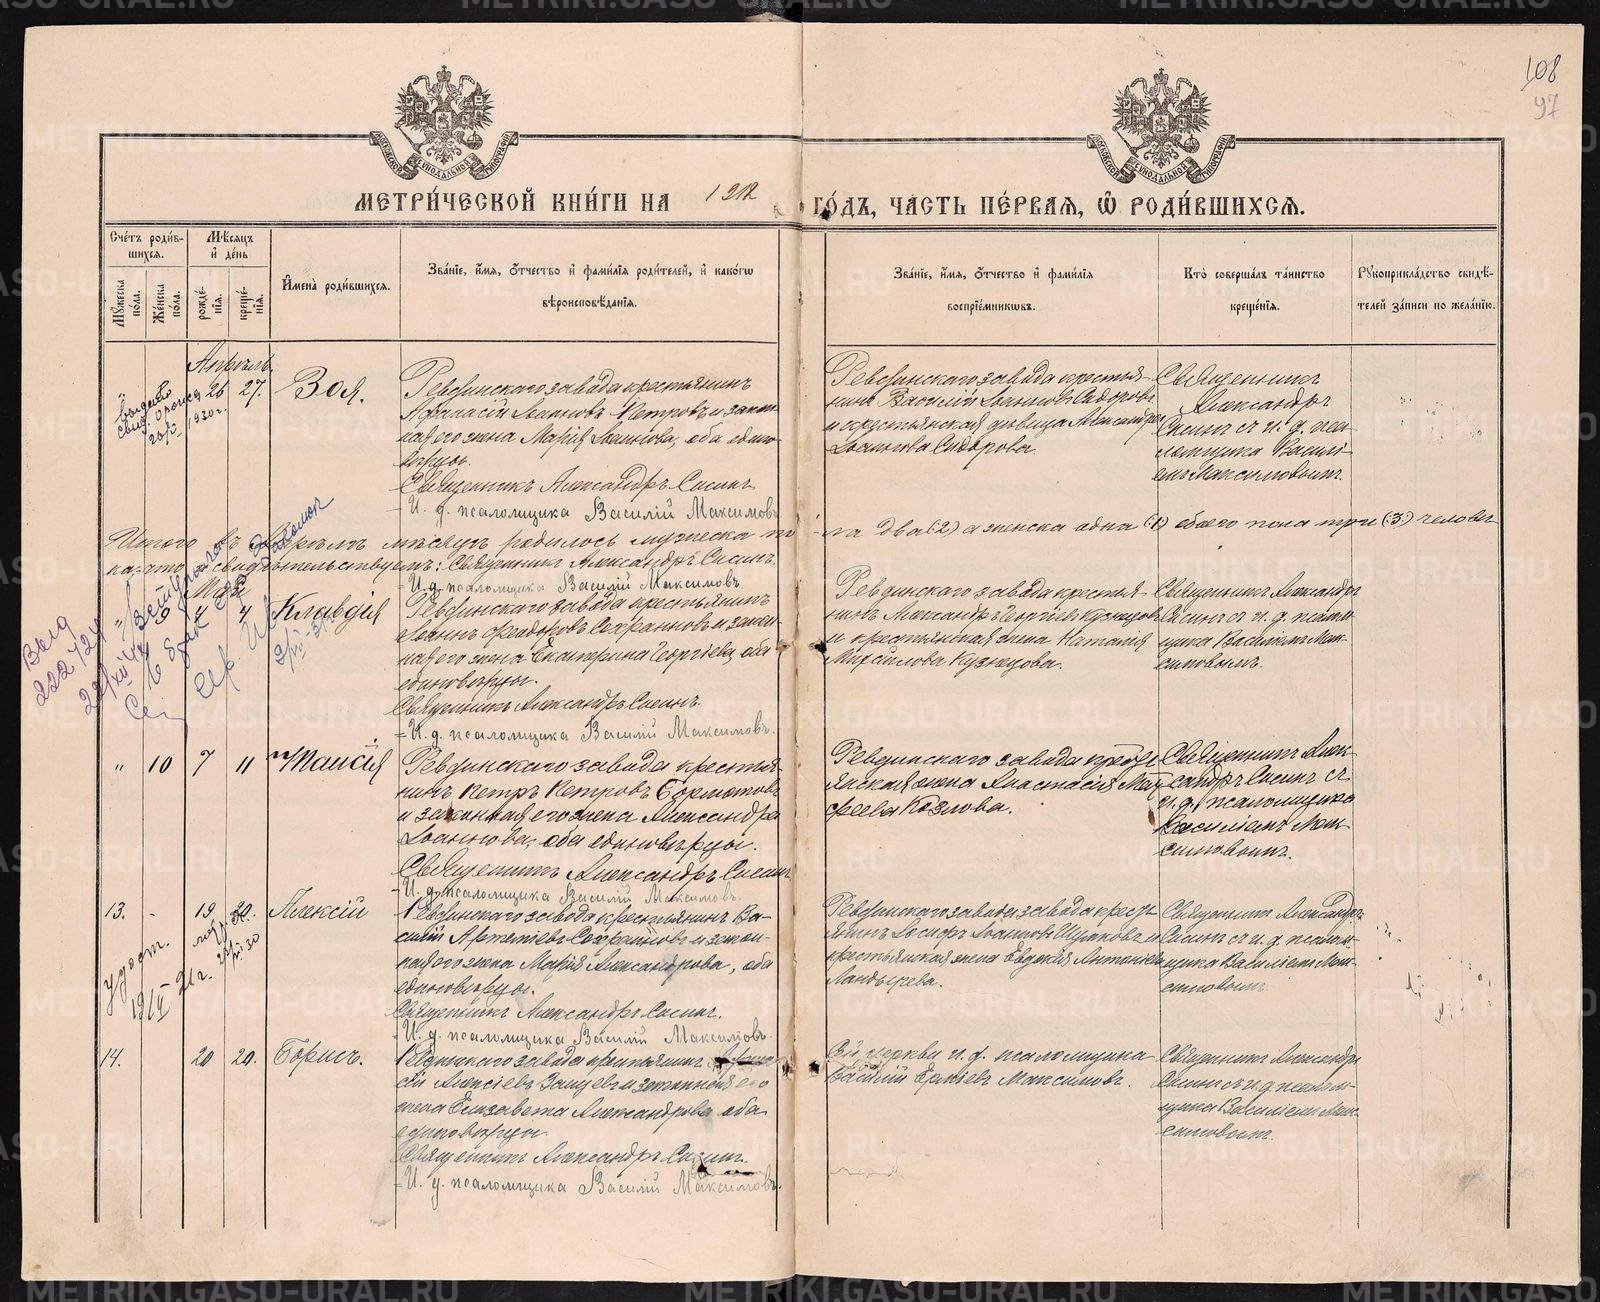 108
97
МЕТРИ́ЧЕСКОЙ КНИ́ГИ НА 1912 ГО́ДЪ, ЧАСТЬ ПЕ́РВАЯ, Ѡ РОДИ́ВШИХСЯ.
Сче́тъ роди́вшихся.
Мѣ́сяцъ и҆ де́нь
Мꙋ́жеска по́ла.
Же́нска по́ла.
рожде́нїя.
креще́нїя.
И҆мена̀ роди́вшихся.
Зва́нїе, и҆́мя, ѻ҆́тчество и҆ фами́лїя роди́телей, и҆ како́гѡ вѣроисповѣ́данїя.
Зва́нїе, и҆́мя, ѻ҆́тчество и҆ фами́лїя воспрїе́мникѡвъ.
Кто̀ соверша́лъ та́инство креще́нїя.
Рꙋкоприкла́дство свидѣ́телей за́писи по жела́нїю.
Апрѣль
" 26 27. Зоя.
Ревдинскаго завода крестьянинъ
Афанасій Іоанновъ Петровъ и закон-
ная его жена Марія Іоаннова, оба едино-
вѣрцы.
Священникъ Александръ Сисинъ
И. д. псаломщика Василій Максимовъ
Ревдинскаго завода крестья-
нинъ Василій Іоанновъ Сидоровъ
и крестьянская дѣвица Александра
Іоаннова Сидорова.
Священникъ
Александръ
Сисинъ съ и. д. пса-
ломщика Васил-
емъ Максимовымъ.
Итого въ Апрѣлѣ мѣсяцѣ родилось мужеска по-ла два (2) а женска одна (1) обоего пола три (3) человѣ-
ка, что и свидѣтельствуемъ: Священникъ Александръ Сисинъ.
И. д. псаломщика Василій Максимовъ
Май
" 9 4 4 Клавдія
Ревдинскаго завода крестьянинъ
Іоаннъ Феодоровъ Сохранновъ и закон-
ная его жена Екатерина Георгіева, оба
единовѣрцы.
Священникъ Александръ Сисинъ.
И. д. псаломщика Василій Максимовъ.
Ревдинскаго завода крестья-
нинъ Александръ Георгіевъ Кузнецовъ
и крестьянская жена Наталія
Михайлова Кузнецова.
Священникъ Александръ
Сисинъ съ и. д. псалом-
щика Василіемъ Мак-
симовымъ.
" 10 7 11 Таисія
Ревдинскаго завода крестья-
нинъ Петръ Петровъ Борматовъ
и законная его жена Александра
Іоаннова, оба единовѣрцы.
Священникъ Александръ Сисинъ
И. д. псаломщика Василій Максимовъ.
Ревдинскаго завода крестьянская жена Анастасія Мат-
феева Козлова.
Священникъ Алек-
сандръ Сисинъ съ
и. д. псаломщика
Василіемъ Мак-
симовымъ.
13. - 19 20. Алексій
Ревдинскаго завода крестьянинъ Ва-
силій Артеміевъ Сохранновъ и закон-
ная его жена Марія Александрова, оба
единовѣрцы.
Священникъ Александръ Сисинъ.
И. д. псаломщика Василій Максимовъ.
Ревдинскаго завода завода кресть-
янинъ Іосифъ Іоанновъ Шумковъ и
крестьянская жена Евдокія Антоніева
Ландырева.
Священникъ Александръ
Сисинъ съ и. д. псалом-
щика Василіемъ Мак-
симовымъ
14. 20 20. Борисъ.
сій Алексіевъ Зайцевъ и законная его
жена Елизавета Александрова оба
единовѣрцы.
Священникъ Александръ Сисинъ.
И. д. псаломщика Василій Максимовъ.
Сей церкви и. д. псаломщика
Василій Максимовъ.
Священникъ Александръ
Сисинъ съ и. д. псалом-
щика Василіемъ Мак-
симовымъ.
METRIKI.GASO-URAL.RU